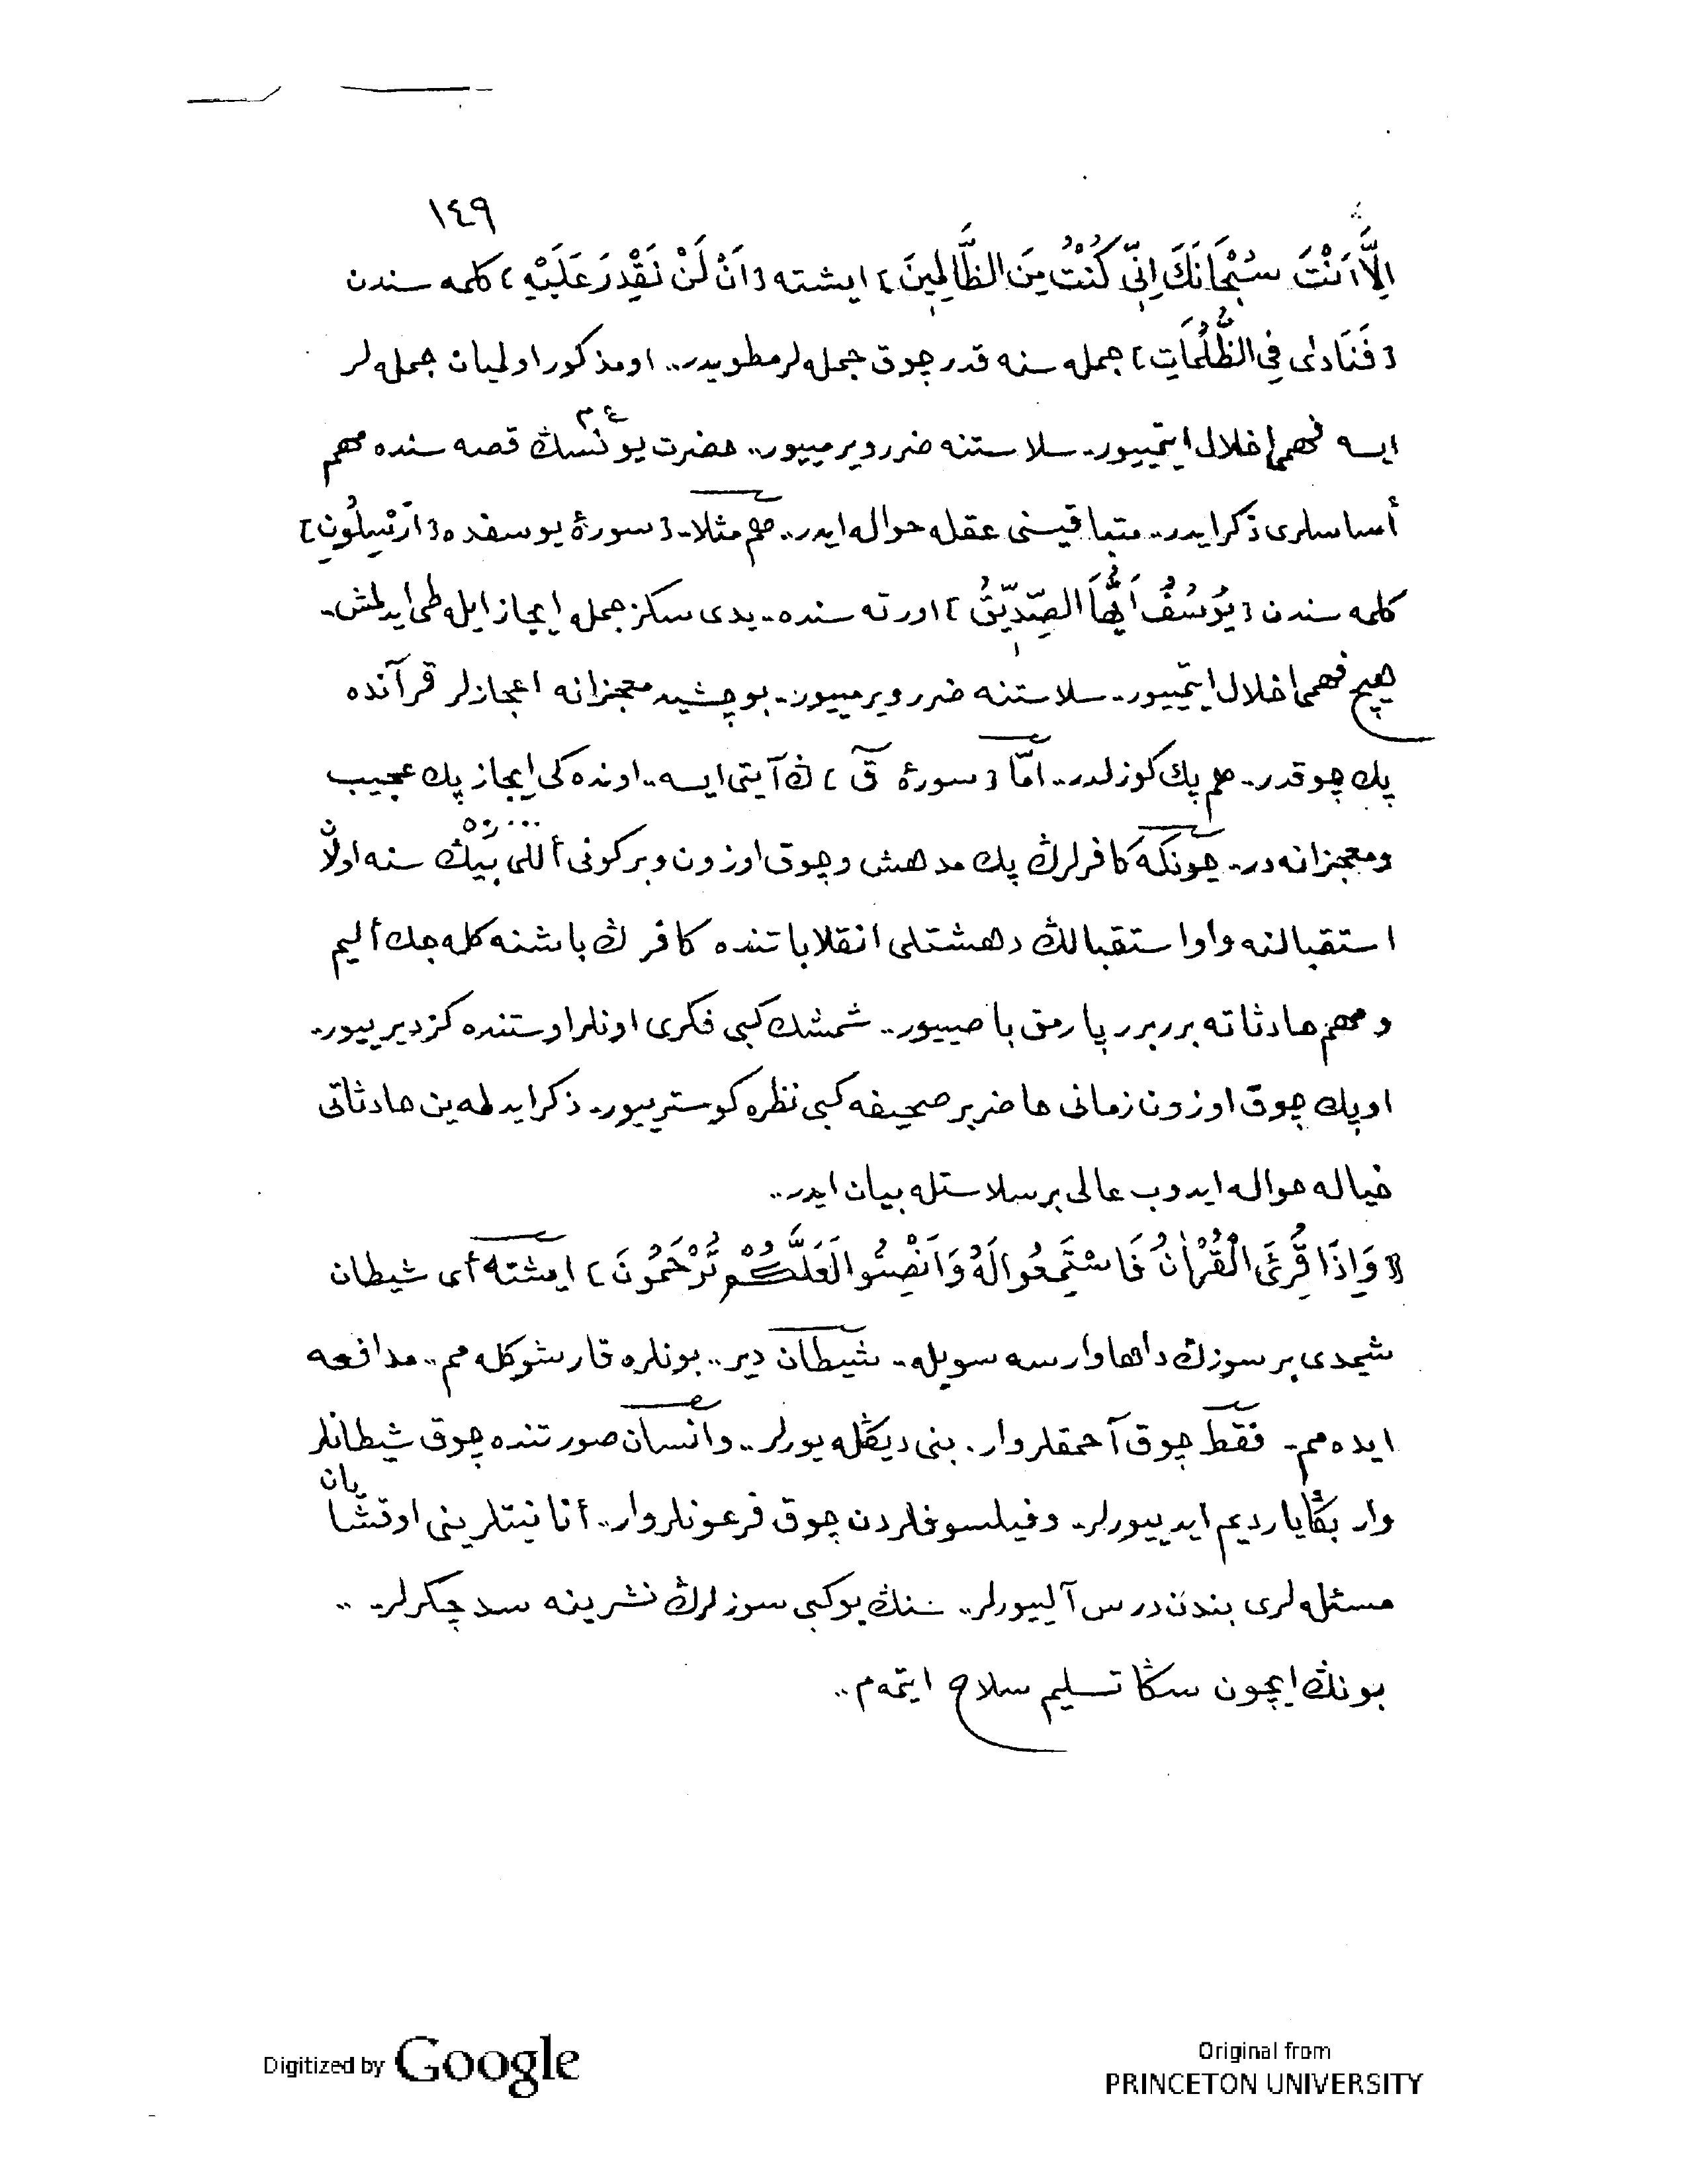 ١٤٩
اِلَّا اَنْتَ سُبْحَانَكَ اِنّٖى كُنْتُ مِنَ الظَّالِمٖينَ ] ايشته [ اَنْ لَنْ نَقْدِرَ عَلَيْهِ ] كلمه سندن
[ فَنَادٰى فِى الظُّلُمَاتِ ] جمله سنه قدر چوق جمله لر مطويدر.. او مذكور اولميان جمله لر
ايسه فهمى اخلال ايتمييور.. سلاستنه ضرر ويرمييور.. حضرت يونسڭ ع م قصه سنده مهم
أساسلرى ذكر ايدر.. متباقيسنى عقله حواله ايدر.. هم مثلا.. [ سورۀ يوسفده [ اَرْسِلُونِ ]
كلمه سندن [ يُوسُفُ اَيُّهَا الصِّدّٖيقُ ] اورته سنده.. يدى سكز جمله ايجاز ايله طى ايدلمش..
هيچ فهمى اخلال ايتمييور.. سلاستنه ضرر ويرمييور.. بو چشيد معجزانه اعجازلر قرآنده
پك چوقدر.. هم پك كوزلدر.. امّا [ سورۀ قٓ ] ڭ آيتى ايسه.. اونده كى ايجاز پك عجيب
ومعجزانه در.. چونكه كافرلرڭ پك مدهش وچوق اوزون وبر كونى أللى بيڭ سنه اولان
استقبالنه واو استقبالڭ دهشتلى انقلاباتنده كافرڭ باشنه كله جك أليم
و مهم حادثاته برر برر پارمق باصييور.. شمشك كبى فكرى اونلر اوستنده كزديرييور..
او پك چوق اوزون زمانى حاضر بر صحيفه كبى نظره كوسترييور.. ذكر ايدلمه ين حادثاتى
خياله حواله ايدوب عالى بر سلاستله بيان ايدر..
[ وَاِذَا قُرِئَ الْقُرْاٰنُ فَاسْتَمِعُوا لَهُ وَاَنْصِتُوا لَعَلَّكُمْ تُرْحَمُونَ ] ايشته أى شيطان
شيمدى بر سوزڭ داها وارسه سويله.. شيطان دير.. بونلره قارشو كله مم.. مدافعه
ايده مم.. فقط چوق آحمقلر وار. بنى ديڭله يورلر.. وانسان صورتنده چوق شيطانلر
وار بڭا يارديم ايدييورلر.. وفيلسوفلردن چوق فرعونلر وار.. أنانيتلرينى اوقشايان
مسئله لرى بندن درس آلييورلر.. سنڭ بو كبى سوزلرڭ نشرينه سد چكرلر..
بونڭ ايچون سڭا تسليم سلاح ايتمه م..
Digitized by Google
Original from
PRINCETON UNIVERSITY